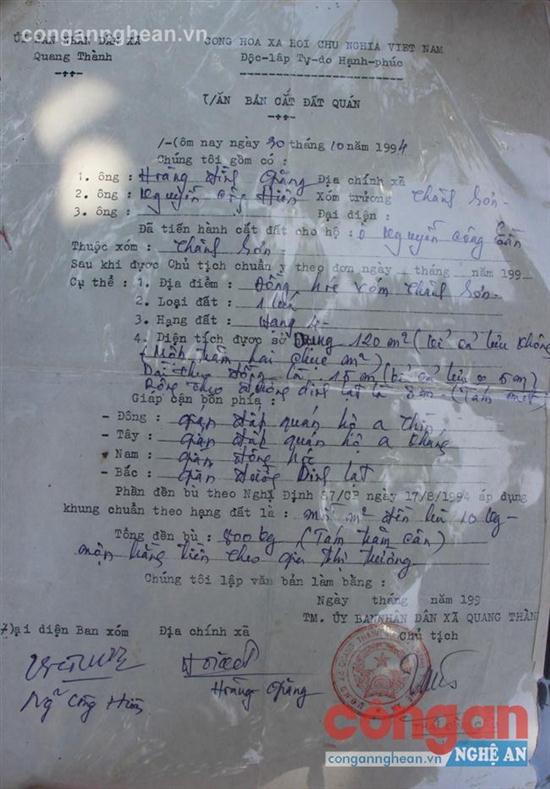 congannghean.vn
ỦY BAN NHÂN DÂN XÃ
CỘNG HÒA XÃ HỘI CHỦ NGHĨA VIỆT NAM
Quang Thành
Độc-lập Tự-do Hạnh-phúc
VĂN BẢN CẮT ĐẤT QUÁN
Hôm nay ngày 30 tháng 10 năm 1994
Chúng tôi gồm có :
1. ông : Hoàng Đình Giảng Địa chính xã
2. ông : Nguyễn Công Hiền Xóm trưởng Thành Sơn
3. ông : Đại diện :
Đã tiến hành cắt đất cho hộ : Ô Nguyễn Công
Thuộc xóm : Thành Sơn
Sau khi được Chủ tịch chuẩn y theo đơn ngày tháng năm 199
Cụ thể : 1. Địa điểm : Đồng xóm Thành Sơn
2. Loại đất : 1 lúa
3. Hạng đất : Hạng 4
4. Diện tích được sử Dụng 120 m² (kể cả lưu không)
(Một trăm hai chục m²)
Dài theo đồng là 15m (kể cả lưu 5m)
Rộng theo đường Dinh lạt là 8m (Tám mét)
Giáp cận bốn phía :
- Đông : giáp quán hộ a
- Tây : giáp quán hộ a Kháng
- Nam : giáp đồng
- Bắc : giáp đường Dinh lạt
Phần đền bù theo Nghị Định 87/CP ngày 17/8/1994 áp dụng
khung chuẩn theo hạng đất là : mỗi m² đền bù 10 kg
Tổng đền bù : 800kg (Tám trăm cân)
bằng tiền theo giá thị trường
Chúng tôi lập văn bản làm bằng :
Ngày tháng năm 199
TM. ỦY BAN NHÂN DÂN XÃ QUANG THÀNH
Đại diện Ban xóm Địa chính xã Chủ tịch
Ng Công Hiền
Hoàng Giảng
congan
NGHỆ AN
congannghean.vn